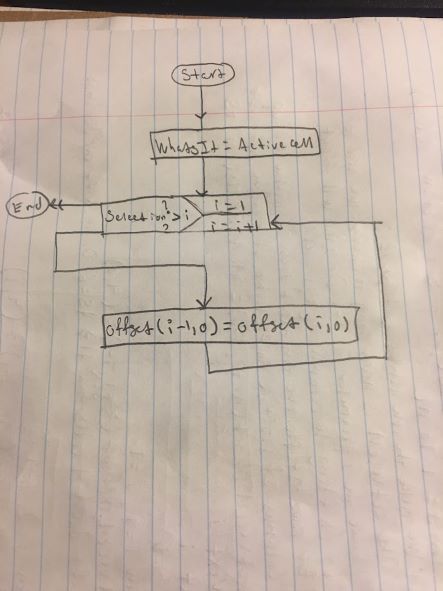 Start
WhatsIt = Activecell
End
Selection > i
?
i = 1
i = i+1
offset(i-1,0) = offset(i,0)